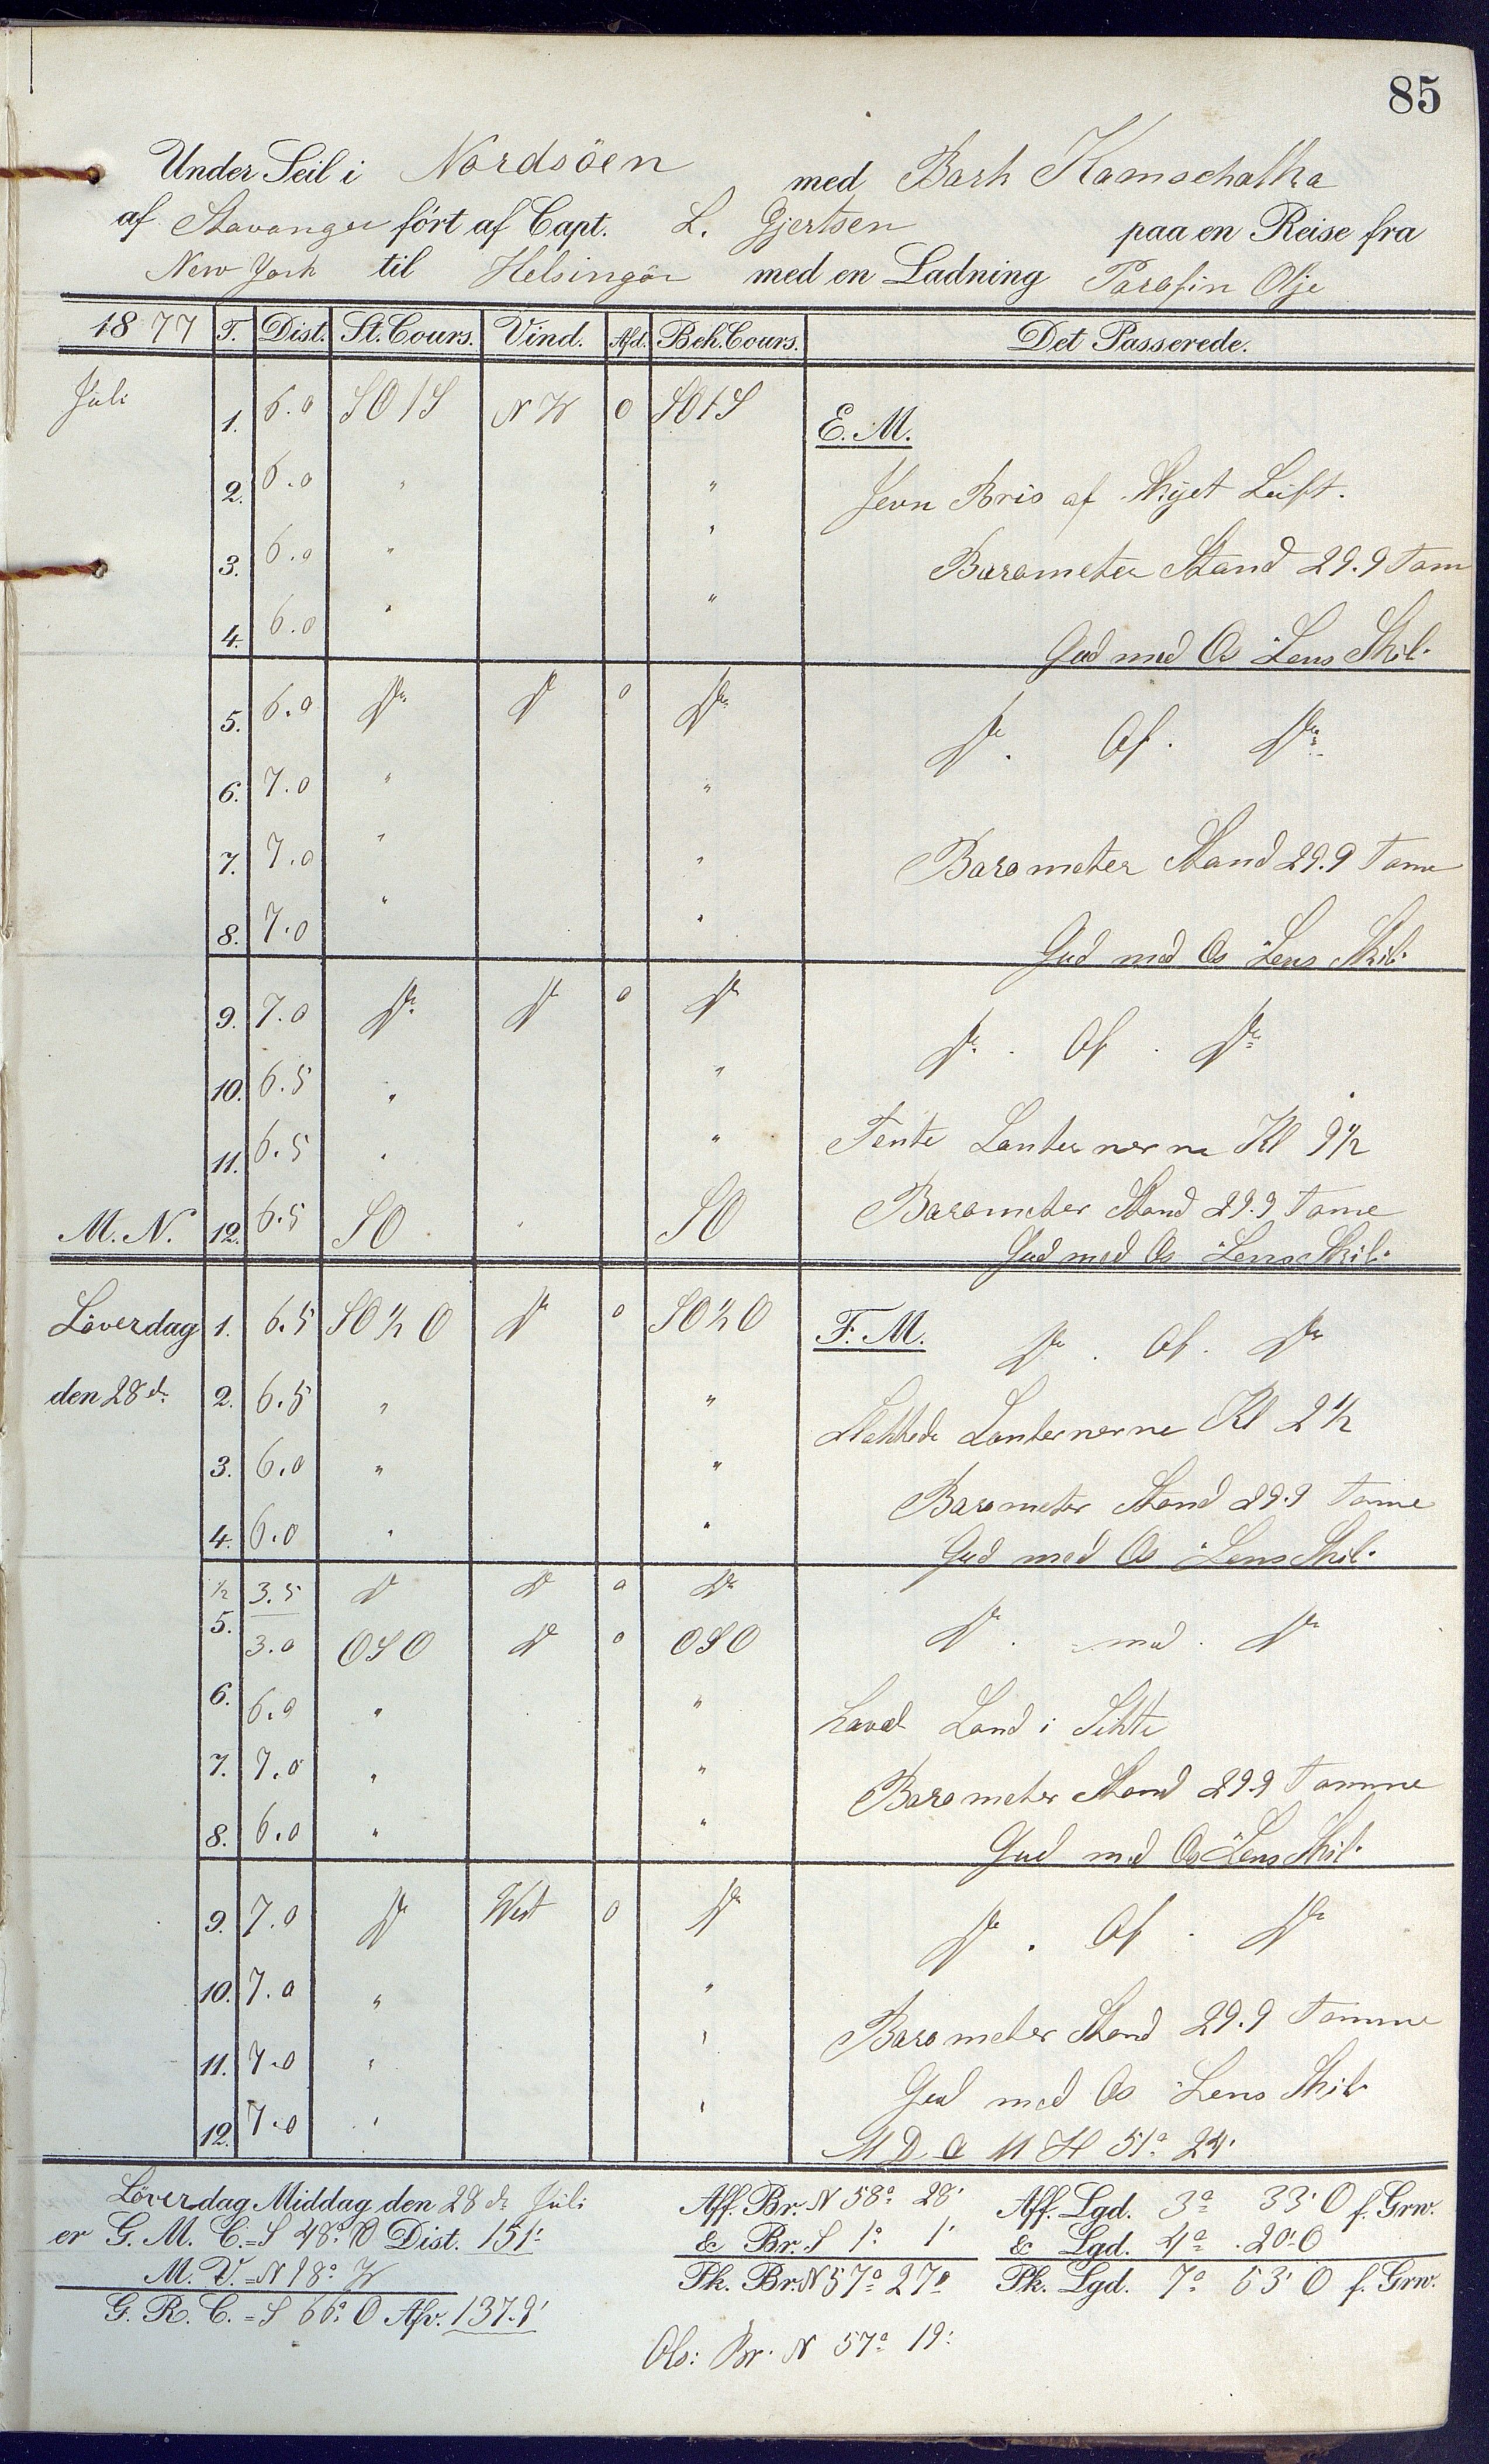 85
Under Seil i Nordsöen med Bark Kamschatka
af Stavanger ført af Capt. L. Gjertsen paa en Reise fra
New York til Helsingör med en Ladning Parafin Olje
1877 T. Dist. St. Cours. Vind. Afd. Beh. Cours. Det Passerede.
Juli 1. 6.0 SO t S NW 0 SO t S E. M.
2. 6.0 " " Jevn Bris af Skyet Luft.
3. 6.0 " " Barometer Stand 29.9 Tom
4. 6.0 " " Gud med Os Lens Skib
5. 6.0 Do Do 0 Do Do. Af. Do
6. 7.0 " "
7. 7.0 " " Barometer Stand 29.9 Tome
8. 7.0 " " Gud med Os Lens Skib
9. 7.0 Do Do 0 Do Do. Af. Do
10. 6.5 " "
11. 6.5 " " Tente Lanternerne Kl 9½
M. N. 12. 6.5 SO " SO Barometer Stand 29.9 Tome
Gud med Os Lens Skib.
Löverdag 1. 6.5 SO ½ O Do 0 SO ½ O F. M. Do. Af. Do
den 28 d. 2. 6.5 " " Slakkede Lanternerne Kl 2½
3. 6.0 " " Barometer Stand 29.9 Tome
4. 6.0 " " Gud med Os Lens Skib.
½ 3.5 Do Do 0 Do
5. 3.0 OSO Do 0 OSO Do. med. Do
6. 6.0 " " Land i Sikte
7. 7.0 " " Barometer Stand 29.9 Tomme
8. 6.0 " " Gud med Os Lens Skib.
9. 7.0 Do West 0 Do Do. Af. Do
10. 7.0 " "
11. 7.0 " " Barometer Stand 29.9 Tomme
Gud med Os Lens Skib
12. 7.0 " " M D O M H 51° 24'
Löverdag Middag den 28 d. Juli
er G. M. C. = S 48° O Dist. 151'
M. V. = N 18° W
G. R. C. = S 66° O Afv. 137.9'
Aff. Br. N 58° 28' Aff. Lgd. 3° 33' O f. Grw.
& Br. S 1° 1' & Lgd. 4° 20' O
Pk. Br. N 57° 27' Pk. Lgd. 7° 53' O f. Grw.
Obs: Br. N 57° 19'